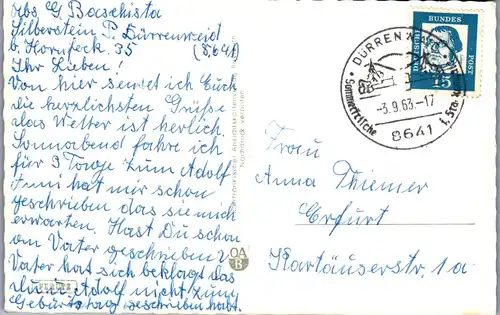 Abs. G. Baschista
Silberstein P. Dürrenweid
b. Hornfeck. 35 (8641)
Ihr Lieben!
Von hier sendet ich Euch
die herzlichsten Grüße
das Wetter ist herrlich.
Sonnabend fahre ich
für 3 Tage zum Adolf
Irmi hat mir schon
geschrieben das sie mich
erwarten. Hast Du schon
om Vater geschrieben?
Vater hat sich beklagt das
Adolf nicht zum
Geburtstag geschrieben hat.
DÜRRENWAID
Sommerfrische
-3.9.63.-17
8641
DEUTSCHE BUNDESPOST
15
Frau
Anna Thiemer
Erfurt
Kartäuserstr. 1a
Nachdruck verboten